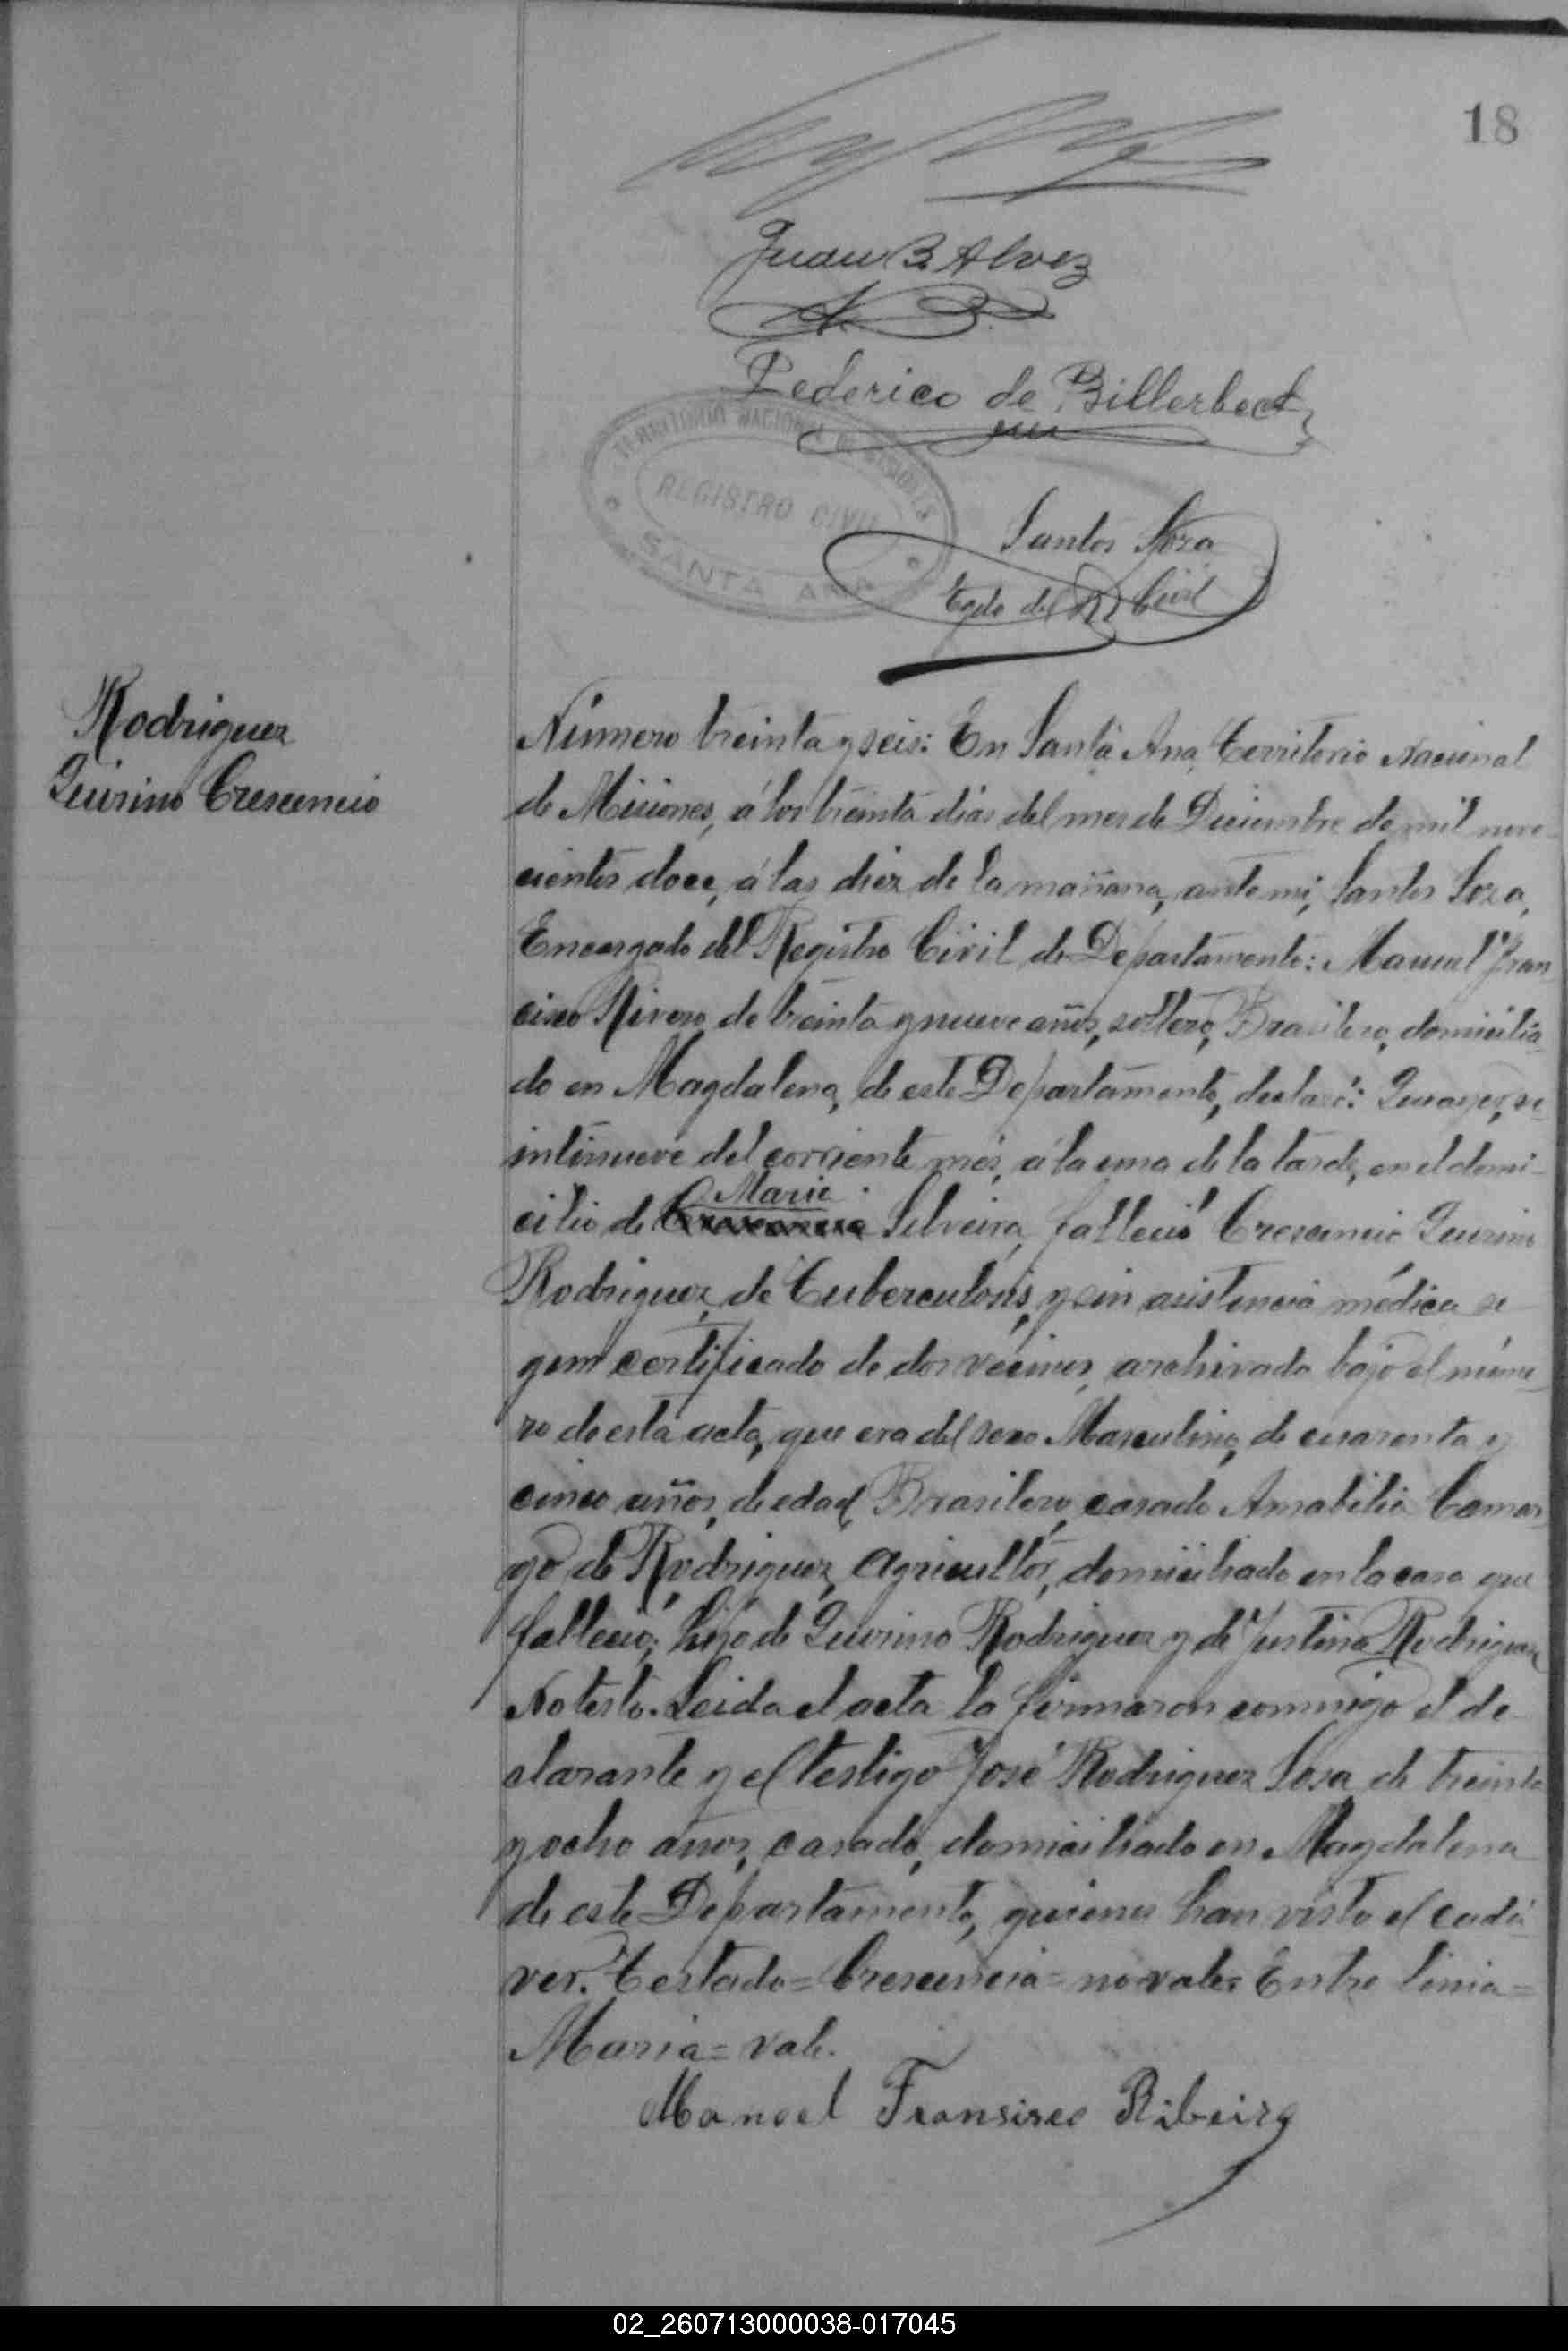 18
Juan B. Alvez
Federico de Billerbeck
TERRITORIO NACIONAL DE MISIONES
REGISTRO CIVIL
SANTA ANA
Santos Soza
Egdo del R. Civil
Rodriguez
Quirino Crescencio
Número treinta y seis: En Santa Ana, Territorio Nacional
de Misiones, á los treinta dias del mes de Diciembre de mil nove-
cientos doce, á las diez de la mañana, ante mi, Santos Soza,
Encargado del Registro Civil de Departamento: Manuel Fran
cisco Rivero de treinta y nueve años, soltero, Brasilero, domicilia-
do en Magdalena, de este Departamento, declaró: Que ayer, ve-
intinueve del corriente mes, á la una de la tarde, en el domi-
cilio de Crescencia Maria Silveira, falleció Crescencio Quirino
Rodriguez, de Tuberculosis, y sin asistencia médica se-
gun certificado de dos vecinos, archivado bajo el núme-
ro de esta acta, que era del sexo Masculino, de cuarenta y
cinco años, de edad, Brasilero, casado Amabilia Camar-
go de Rodriguez, Agricultor, domiciliado en la casa que
falleció; hijo de Quirino Rodriguez y de Justina Rodriguez
No testó. Leida el acta la firmaron conmigo el de-
clarante y el testigo José Rodriguez Sosa, de treinta
y ocho años, casado, domiciliado en Magdalena
de este Departamento, quienes han visto el cadá-
ver. Testado = Crescencia = no vale = Entre linia =
Maria = vale.
Manoel Fransisco Ribeiro
02_260713000038-017045